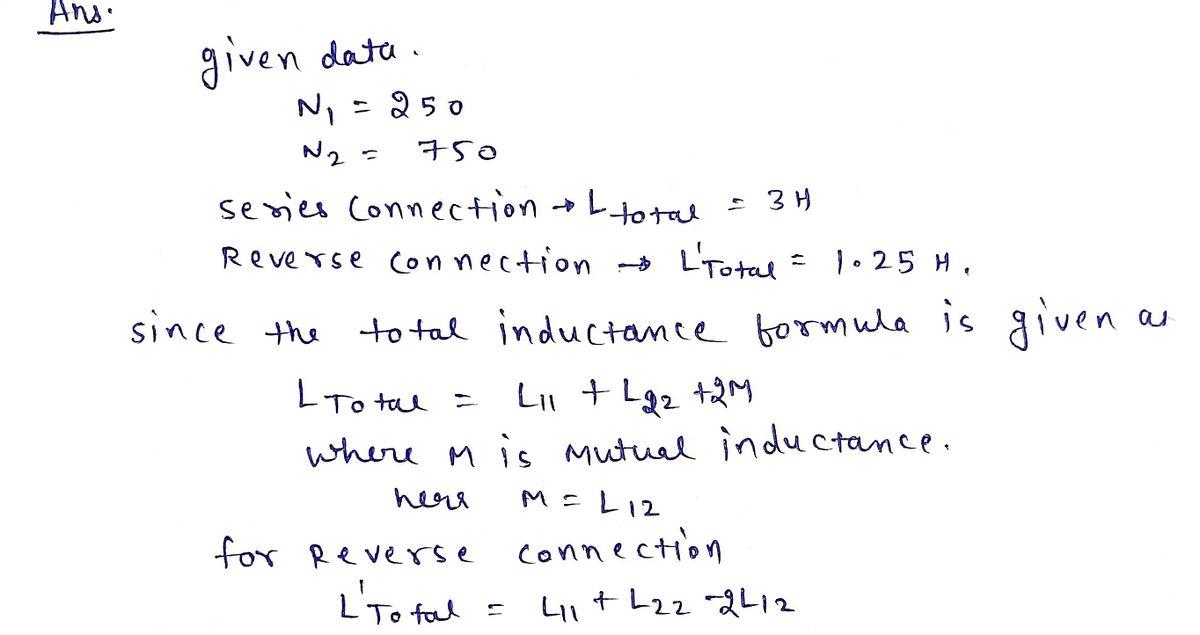 Ans.
given data.
N1 = 250
N2 = 750
series connection → L total = 3 H
Reverse connection → L'Total = 1.25 H.
since the total inductance formula is given as
L Total = L11 + L22 +2M
where M is Mutual inductance.
here M = L12
for Reverse connection
L'Total = L11 + L22 -2L12